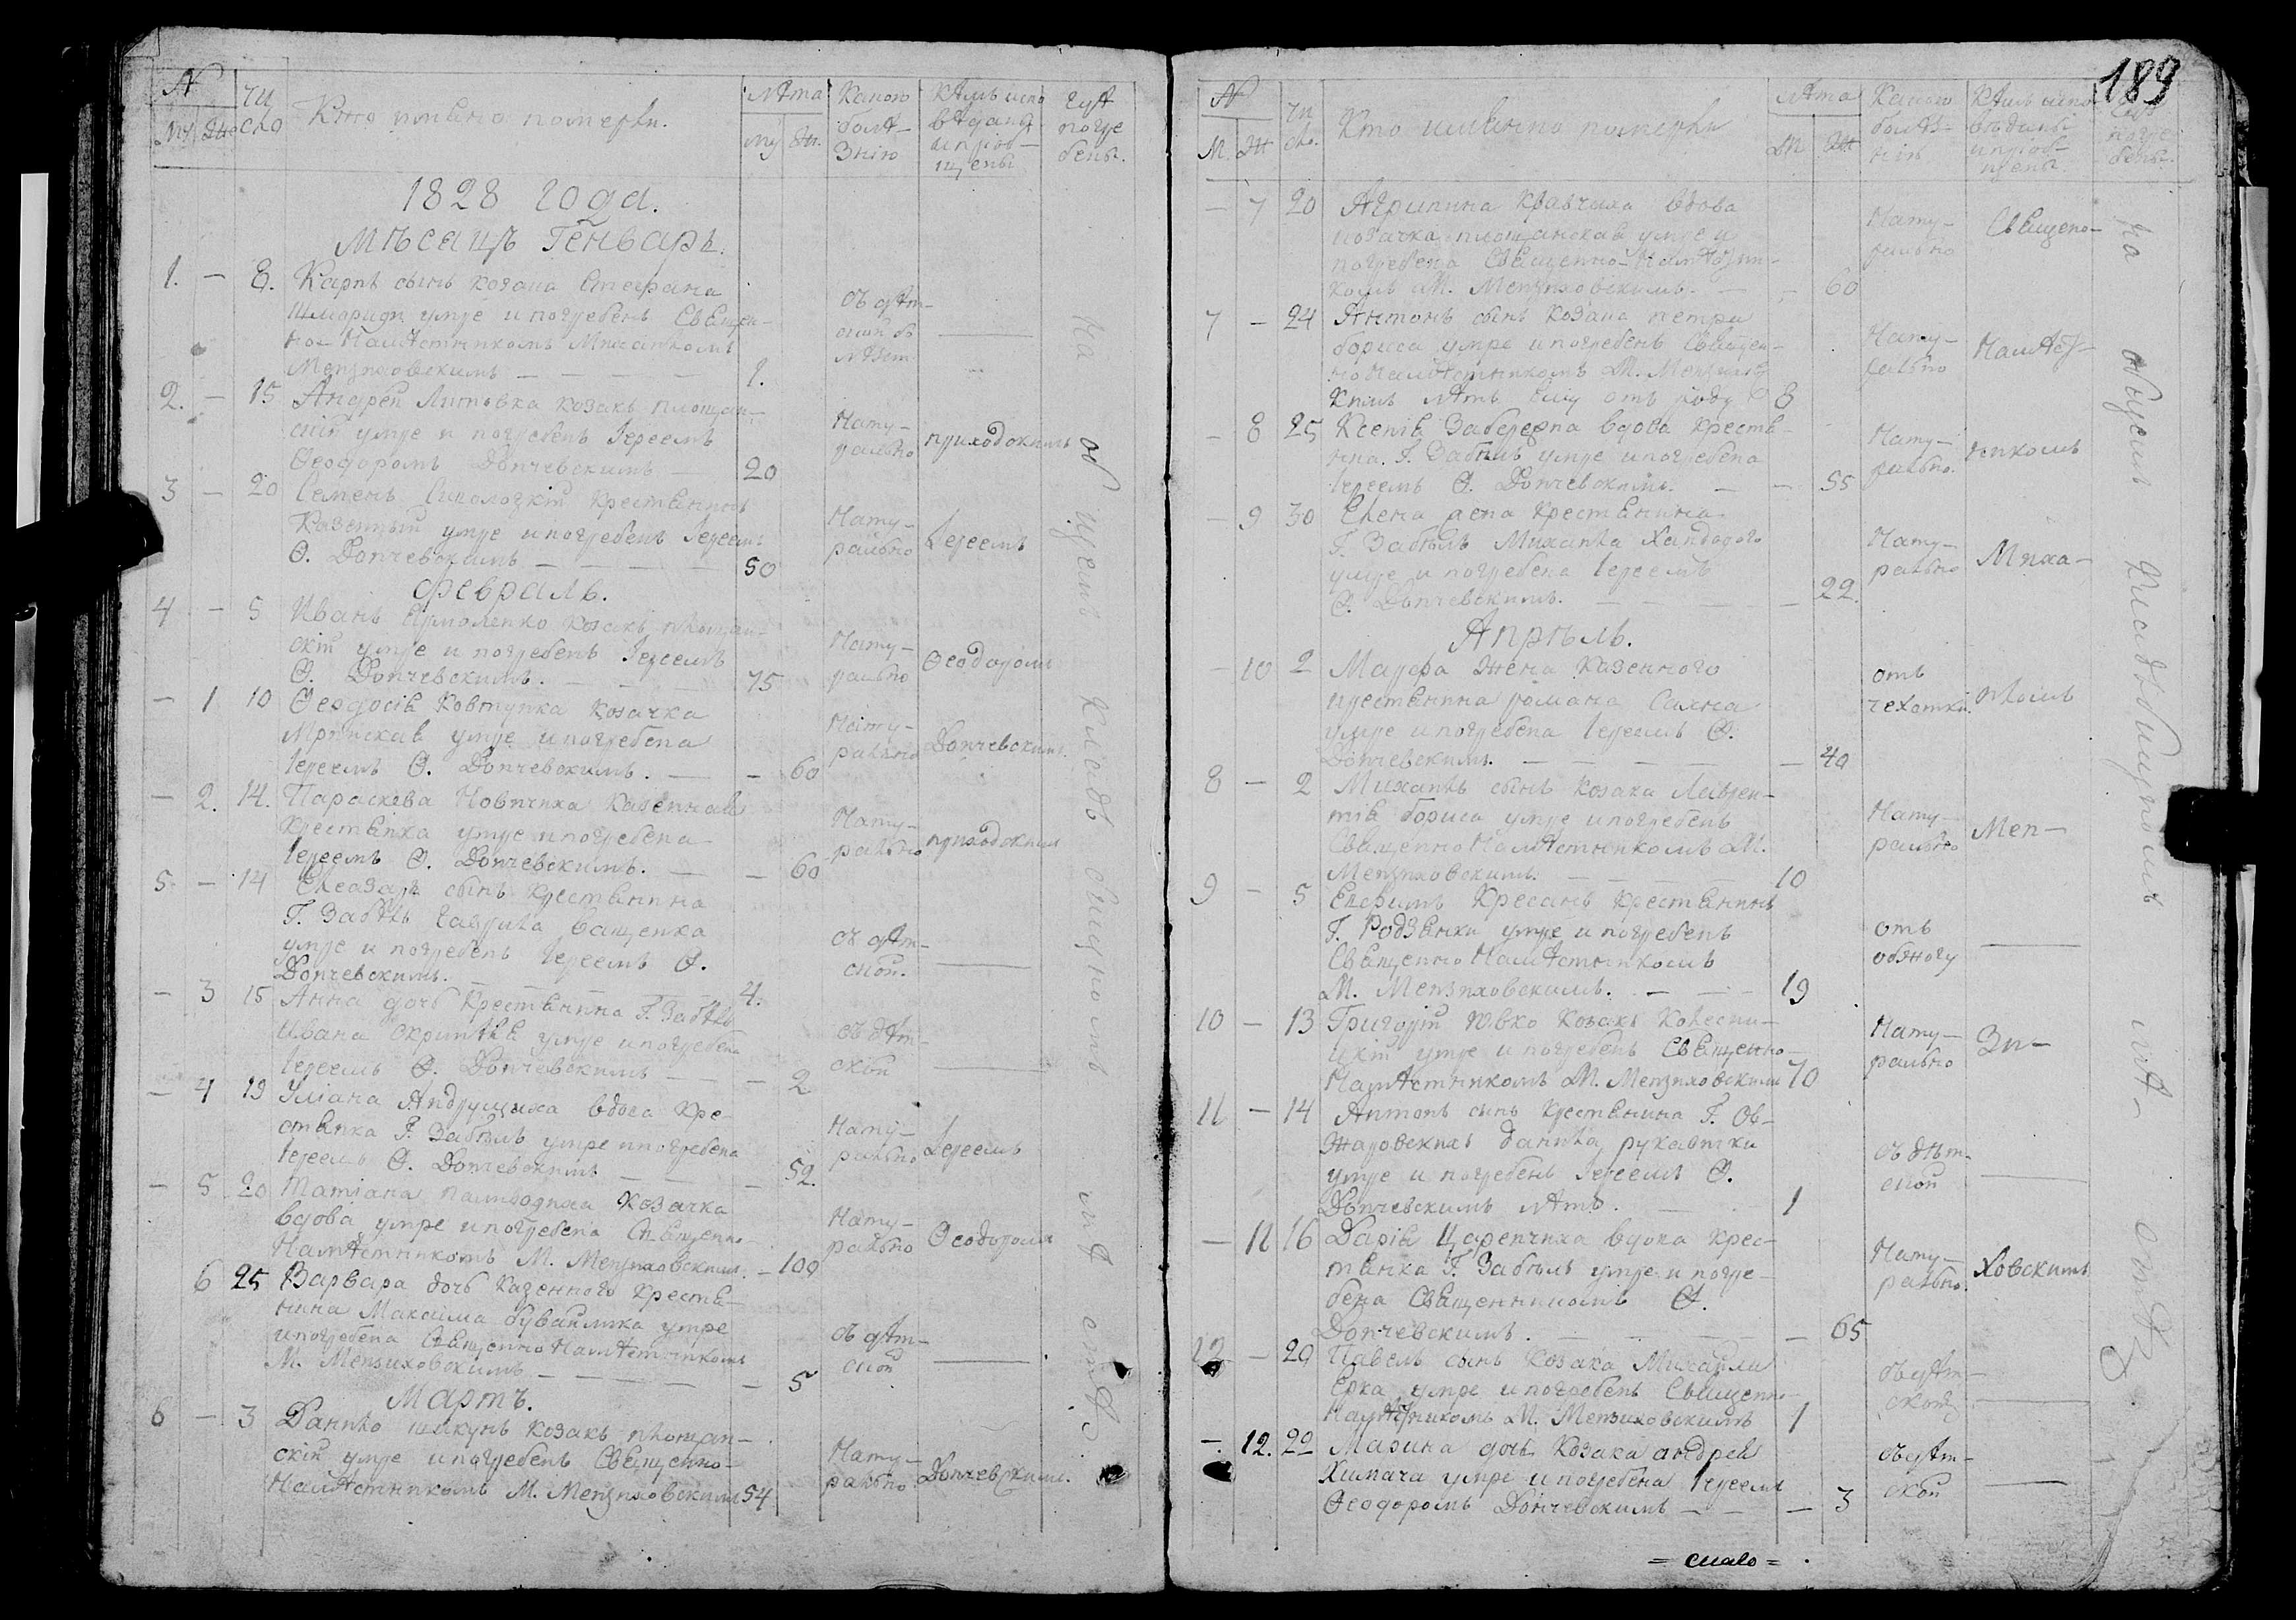 N
чи
сло
Кто имено померли.
лѣта
му
жн.
Какою
болѣ-
знію
Кѣмъ испо
вѣдани
и пріоб-
щены
гдѣ
погре
бены.
1828 года.
Мѣсаць Генварь.
1. — 8. Карпъ сынъ козака Стефана
умре и погребенъ Свящeн-
но-Намѣстникомъ Михаиломъ
Мензиховскимъ — — — — 1.
съ дѣт-
ской
2. — 15 Андрей Литовка козакъ площан-
скій умре и погребенъ Іереемъ
Ѳеодоромъ Дончевскимъ — 20
Нату-
рально
приходскимъ
3 — 20 Семенъ крестянинъ
Казенный умре и погребенъ Іереемъ
Ѳ. Дончевскимъ — — — — 50
Нату-
рально
Іереемъ
Февраль.
4 — 5 Иванъ Ермоленко козакъ площан-
скій умре и погребенъ Іереемъ
Ѳ. Дончевскимъ. — — — 75
Нату-
рально
Ѳеодоромъ
— 1 10 Ѳеодосія Ковтунка козачка
умре и погребена
Іереемъ Ѳ. Дончевскимъ. — — 60
Нату-
рально
Дончевскимъ.
— 2. 14. Параскева Новичиха Казенная
Крестянка умре и погребена
Іереемъ Ѳ. Дончевскимъ. — — 60
Нату-
рально
приходскимъ
5. — 14 Елеазаръ сынъ крестянина
Г. Забѣлъ Гаврила Ващенка
умре и погребенъ Іереемъ Ѳ.
Дончевскимъ. — — — — 4.
съ дѣт-
ской.
— 3 15 Анна дочь Крестянина Г. Забѣлъ
Ивана умре и погребена
Іереемъ Ѳ. Дончевскимъ — — — 2
съ дѣт-
ской
— 4 19 Уліана Андрущиха вдова кре-
стянка Г. Забѣлъ умре и погребена
Іереемъ Ѳ. Дончевскимъ — — — 52.
Нату-
рально
Іереемъ
— 5 20 Татіана козачка
вдова умре и погребена Священно-
Намѣстникомъ М. Мензиховскимъ. — 100
Нату-
рально
Ѳеодоромъ
6 25 Варвара дочь казенного крестя-
нина Максима умре
и погребена Священно Намѣстникомъ
М. Мензиховскимъ — — — — — 5
съ дѣт-
ской
Мартъ.
6 — 3 Данило козакъ площан-
скій умре и погребенъ Священно-
Намѣстникомъ М. Мензиховскимъ 54
Нату-
рально
Дончевскимъ.
На об щемъ кладбищномъ мѣстѣ.
189
N
М. Ж
чи
сло.
Кто именно померли
лѣта
М Ж
Какою
болѣз-
нію
Кѣмъ испо-
вѣданы
и пріоб-
щены.
погре
бены.
— 7 20 Агрипина Кравчиха вдова
козачка площанская умре и
погребена Священно-Намѣстни-
комъ М. Мензиховскимъ. — — 60
Нату-
рально
Священо-
7 — 24 Антонъ сынъ козака Петра
бориса умре и погребенъ Свящeн-
но Намѣстникомъ М. Мензихов
скимъ лѣтъ ему отъ роду 8
Нату-
рально
Намѣст-
— 8 25 Ксенія вдова крестя-
нка. Г. Забѣлъ умре и погребена
Іереемъ Ѳ. Дончевскимъ. — — 55
Нату-
рально.
никомъ
— 9 30 Елена жена Крестянина
Г. Забѣлъ Михаила
умре и погребена Іереемъ
Ѳ. Дончевскимъ. — — — — — 22.
Нату-
рально
Миха-
Апрѣль.
— 10 2 Марфа жена казенного
крестянина романа
умре и погребена Іереемъ Ѳ.
Дончевскимъ. — — — — — 40
отъ
чехотки.
иломъ
8 — 2 Михаилъ сынъ козака Лаврен-
тія бориса умре и погребенъ
Священно Намѣстникомъ М.
Мензиховскимъ. — — — — 10
Нату-
рально
Мен-
9 — 5 Ефримъ Кресанъ крестянинъ
Г. Родзянки умре и погребенъ
Священно Намѣстникомъ
М. Мензиховскимъ. — — — 19
отъ
10 — 13 Григорій Ювко козакъ
умре и погребенъ Священно-
Намѣстникомъ М. Мензиховскимъ 70
Нату-
рально
Зи-
11 — 14 Антонъ сынъ крестянина Г. Ов-
жаровскихъ Данила
умре и погребенъ Іереемъ Ѳ.
Дончевскимъ лѣтъ. — — 1
съ дѣт-
ской
— 11 16 Дарія Царенчиха вдова крес-
тянка Г. Забѣлъ умре и погре-
бена Священникомъ Ѳ.
Дончевскимъ. — — — — — 65
Нату-
рально.
Ховскимъ
12 — 20 Павелъ сынъ козака Михайли
Ерка умре и погребенъ Священно-
Намѣстникомъ М. Мензиховскимъ 1
съ дѣт-
ской
—. 12. 22 Марина дочь козака андрея
Химича умре и погребена Іереемъ
Ѳеодоромъ Дончевскимъ — — — 3
съ дѣт-
ской
На общемъ кладбищномъ мѣ- стѣ.
= =